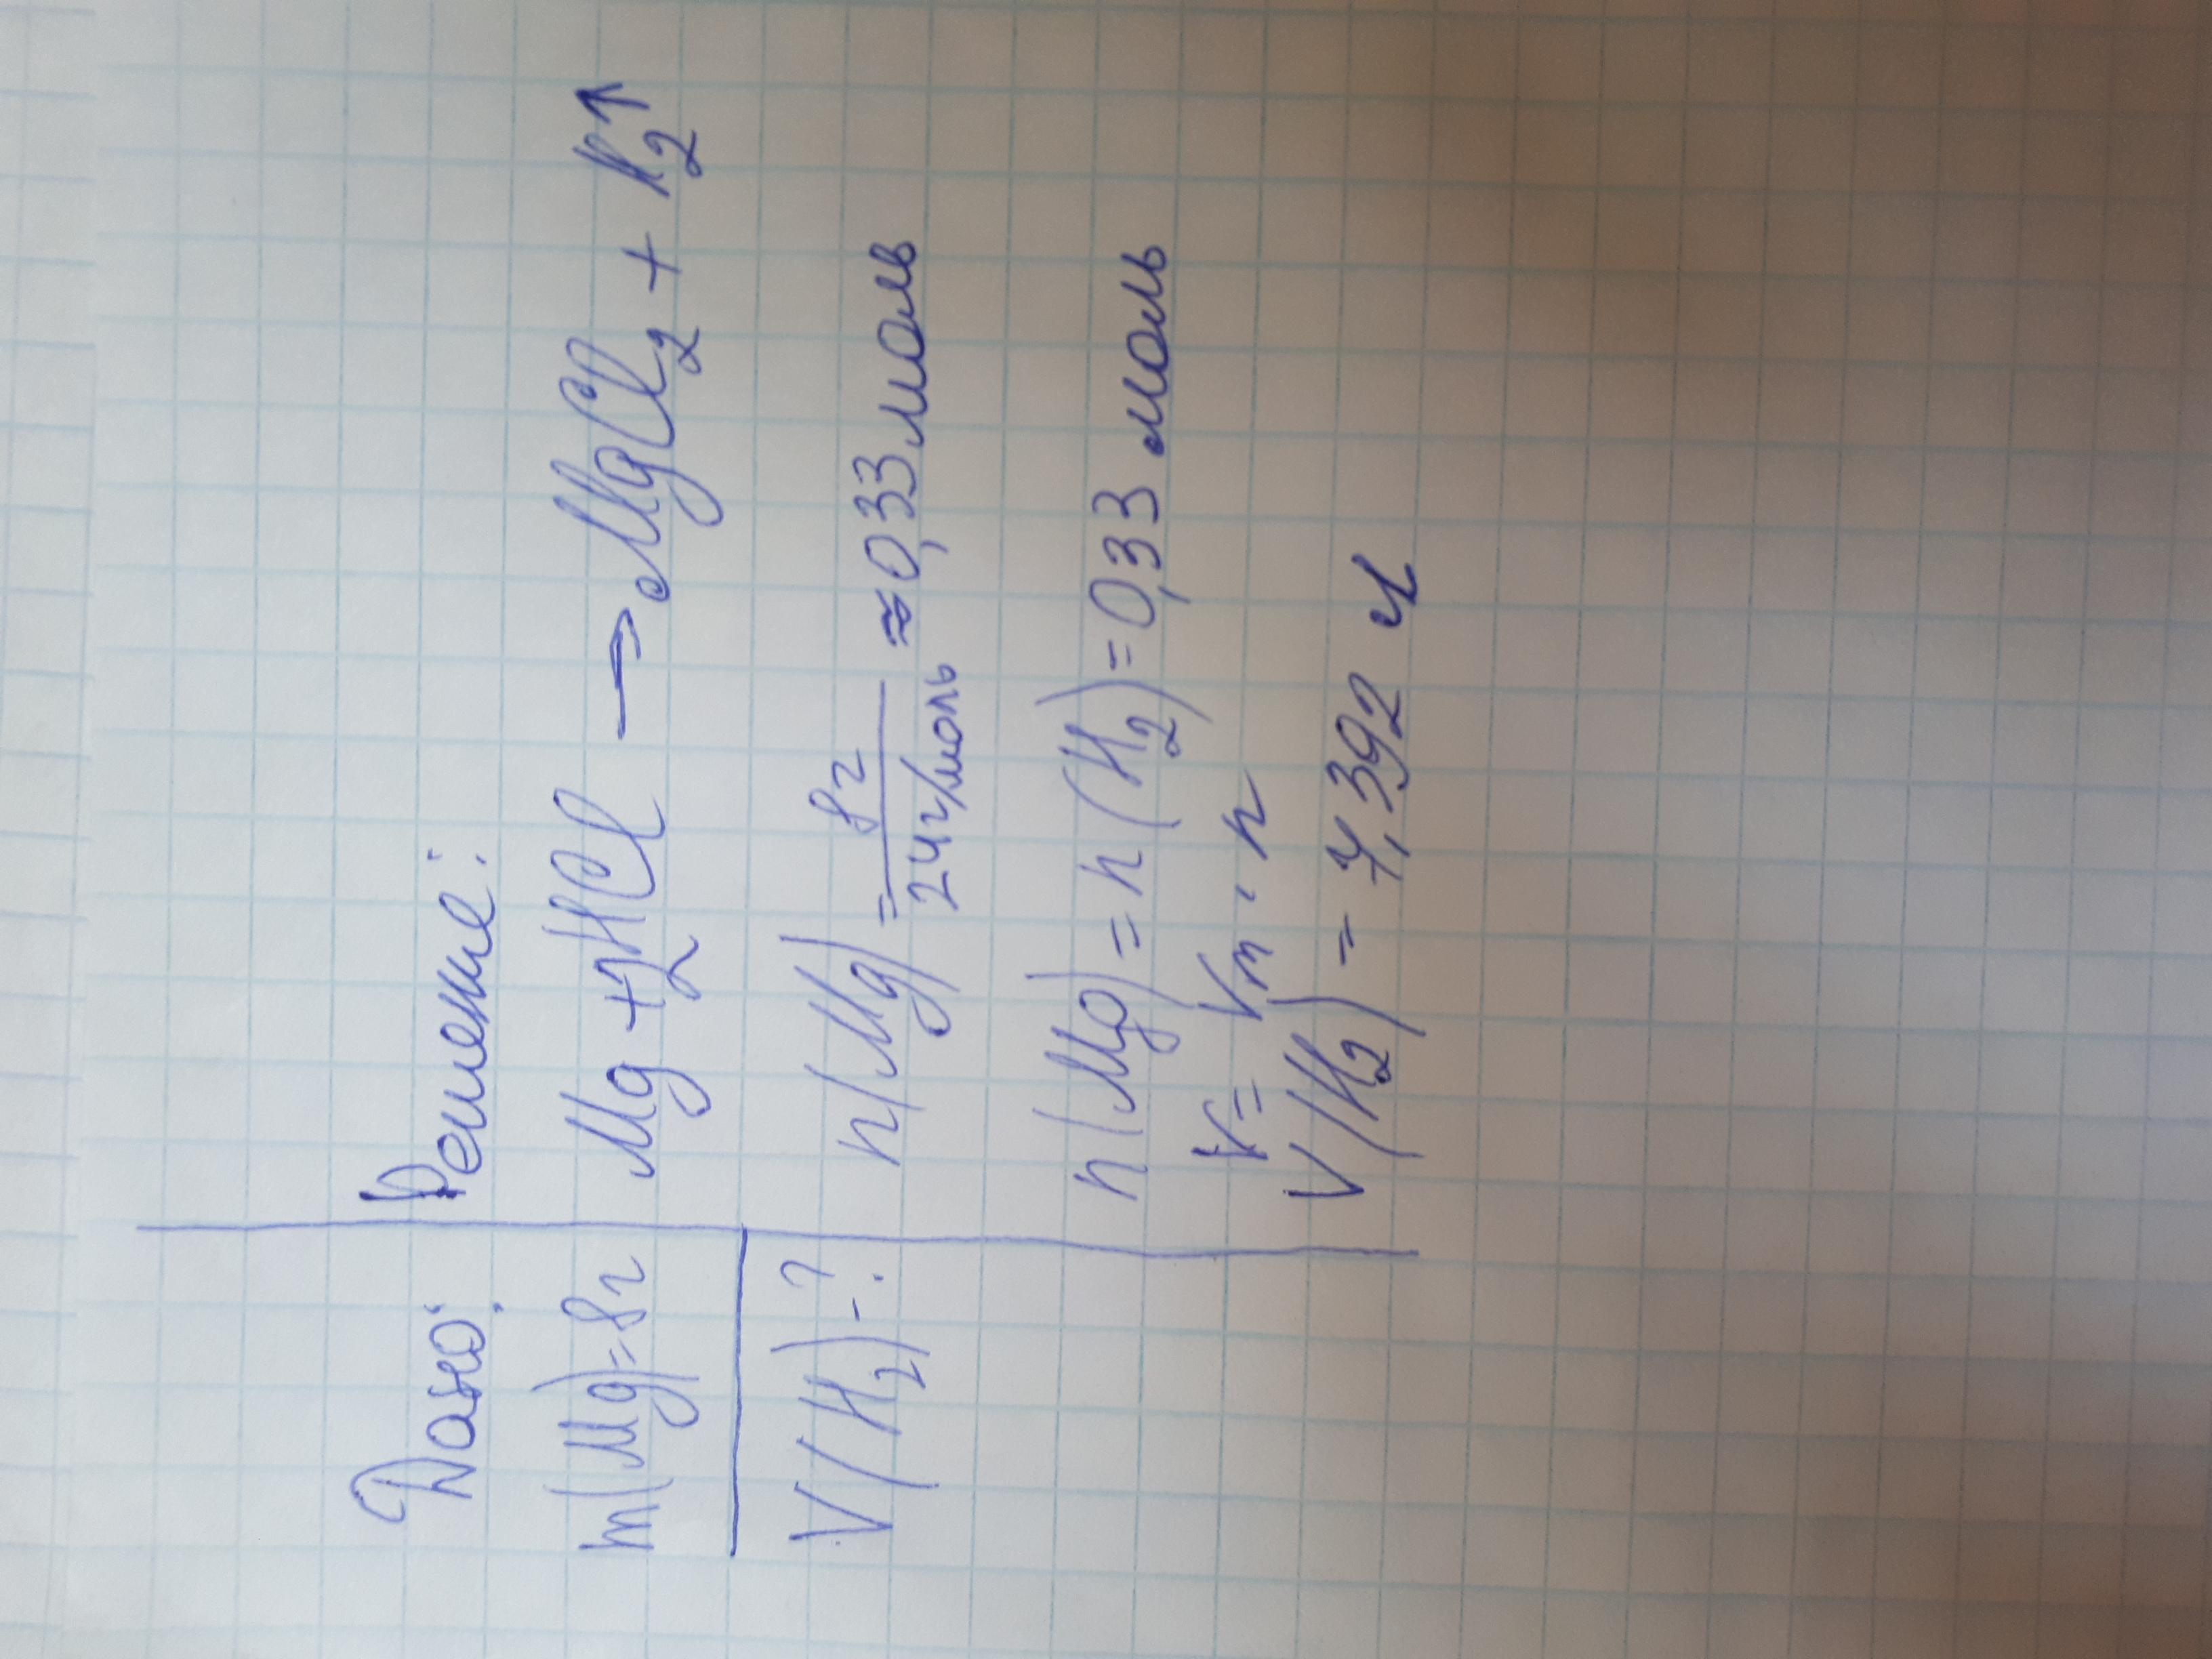 Дано:
m(Mg)=8г
V(H₂)-?
Решение:
Mg + 2HCl → MgCl₂ + H₂↑
n(Mg) = 8г / 24г/моль ≈ 0,33 моль
n(Mg) = n(H₂) = 0,33 моль
V = Vm · n
V(H₂) = 7,392 л